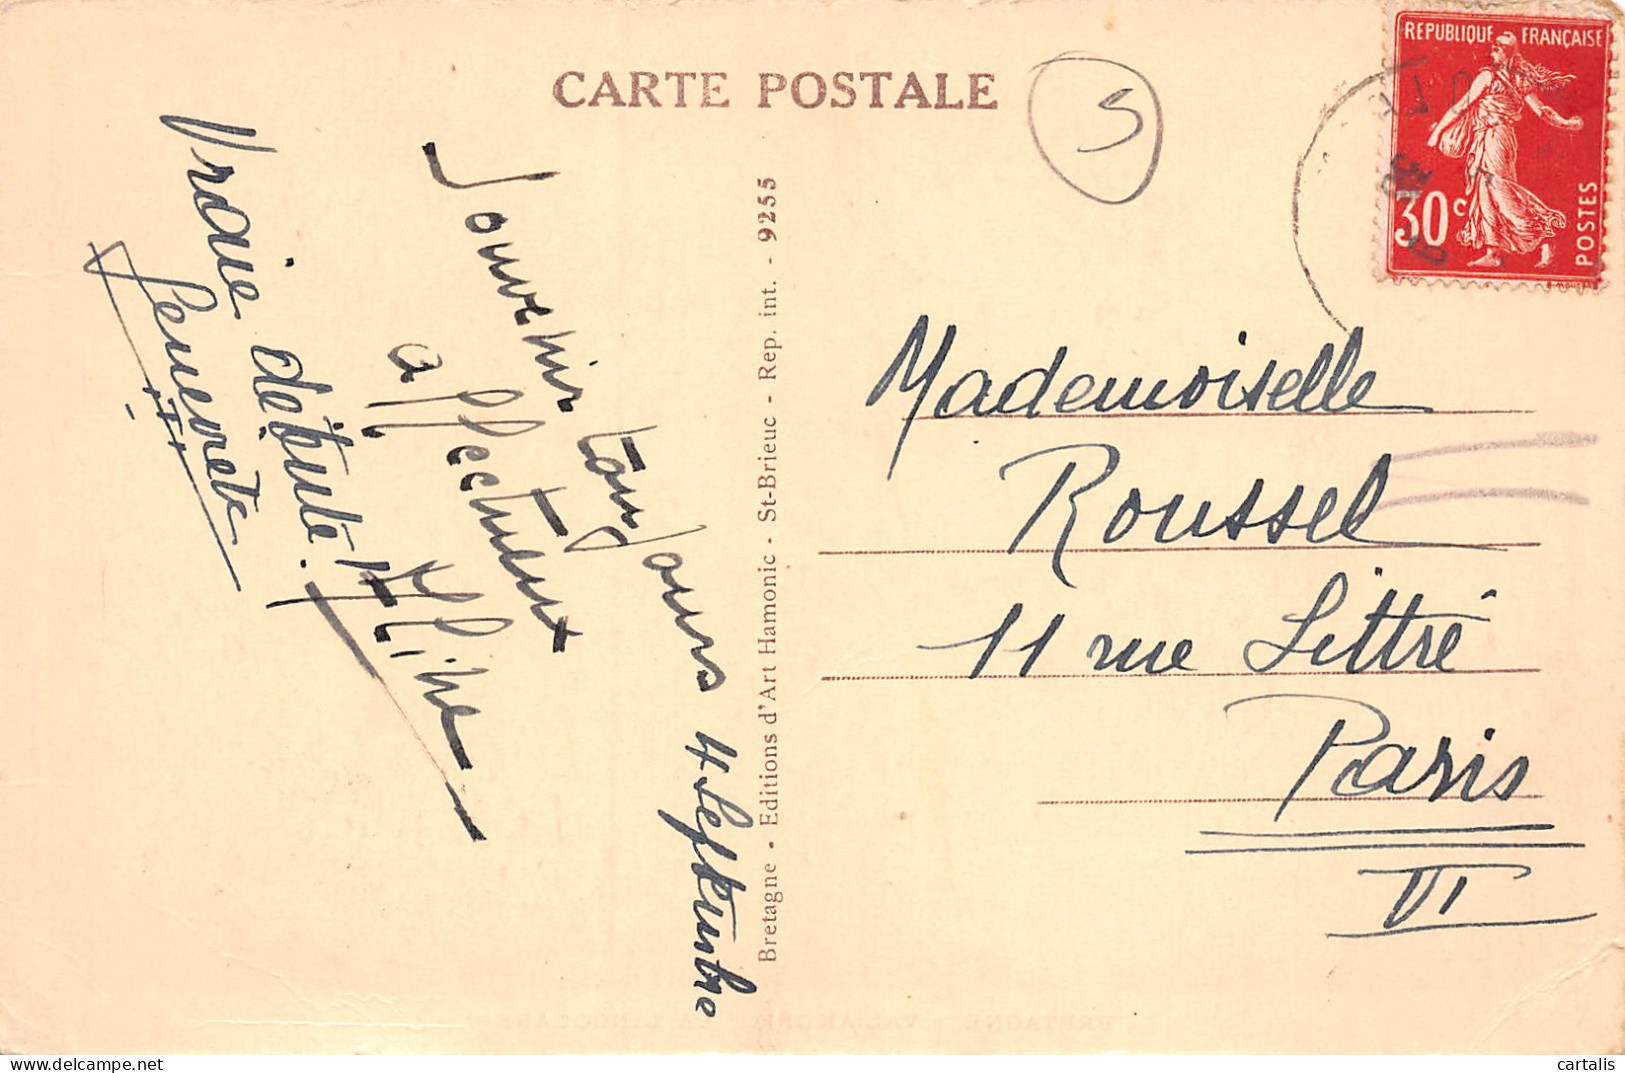 CARTE POSTALE
S
REPUBLIQUE FRANÇAISE
30c
POSTES
4 Septembre
Souvenir toujours
affectueux
Vraie débute
Bretagne - Editions d'Art Hamonic - St-Brieuc - Rep. int. - 9255
Mademoiselle
Roussel
11 rue Littré
Paris
VI
cartalis